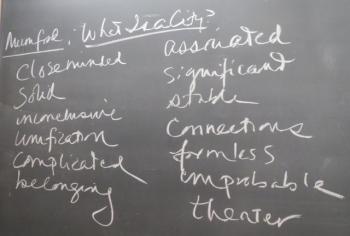 Mumford: What Is a City?
closeminded
solid
inconclusive
unification
complicated
belonging
associated
significant
stable
connections
formless
improbable
theater